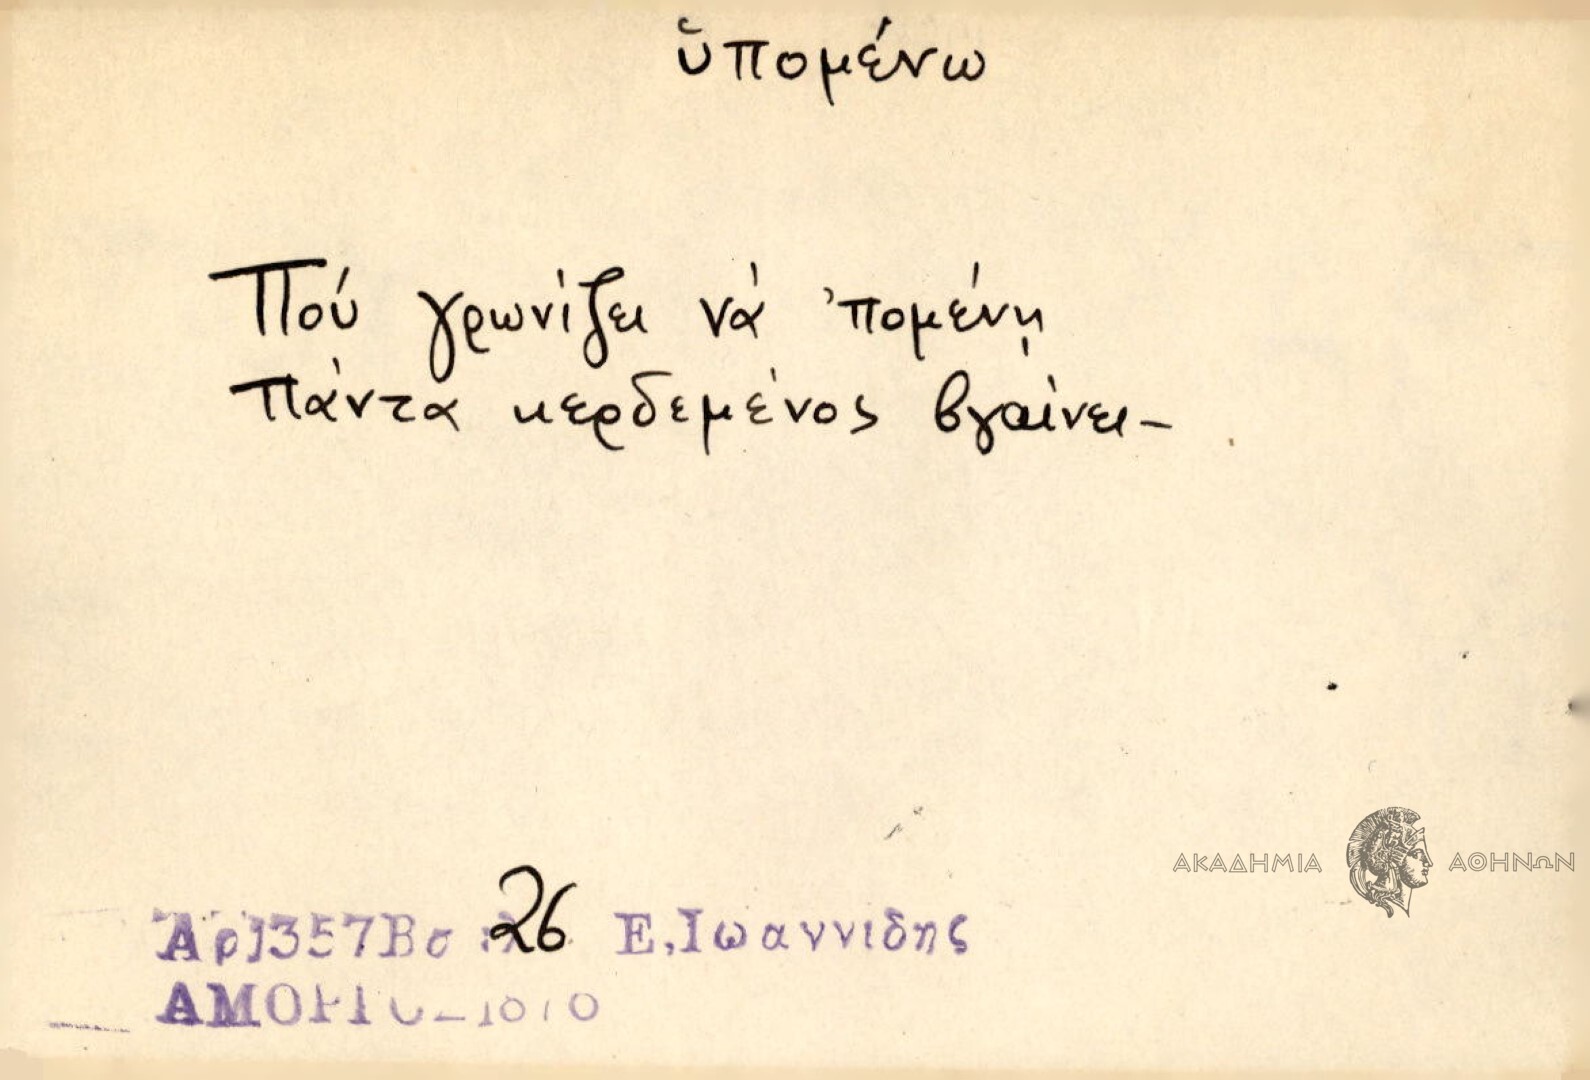 ὑπομένω
Πού γρωνίζει νά ’πομένῃ
πάντα κερδεμένος βγαίνει-
ΑΚΑΔΗΜΙΑ ΑΘΗΝΩΝ
Ἀρ1357Βσ 26 Ε.Ιωαννιδης